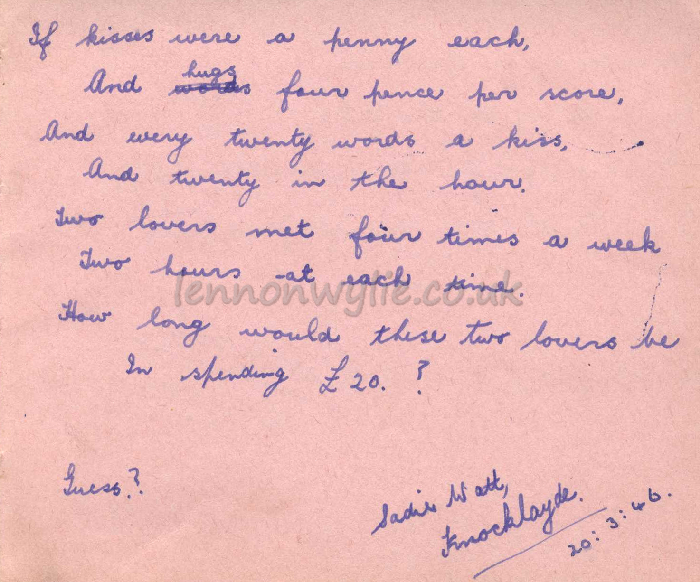 If kisses were a penny each,
And hugs words four pence per score,
And every twenty words a kiss,
And twenty in the hour.
Two lovers met four times a week
Two hours at each time.
lennonwylie.co.uk
How long would these two lovers be
In spending £20. ?
Guess.?
Sadie Watt,
Knocklayde.
20:3:46.